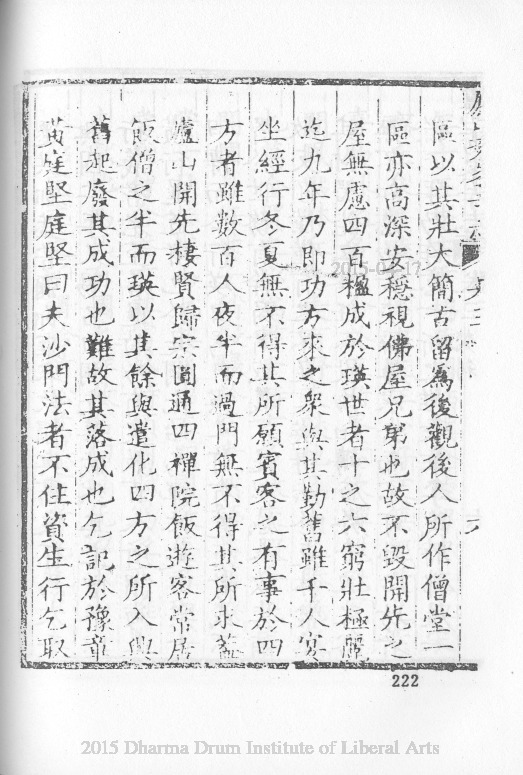 區以其壯大簡古留爲後觀後人所作僧堂一
區亦高深安穩視佛屋兄弟也故不毀開先之
屋無慮四百楹成於瑛世者十之六窮壯極麗
迄九年乃即功方來之衆與其勤舊雖千人宴
坐經行冬夏無不得其所願賓客之有事於四
方者雖數百人夜半而過門無不得其所求葢
廬山開先棲賢歸宗圓通四禪院飯遊客常居
飯僧之半而瑛以其餘與遣化四方之所入興
舊起廢其成功也難故其落成也乞記於豫章
黃庭堅庭堅曰夫沙門法者不住資生行乞取
222
2015 Dharma Drum Institute of Liberal Arts